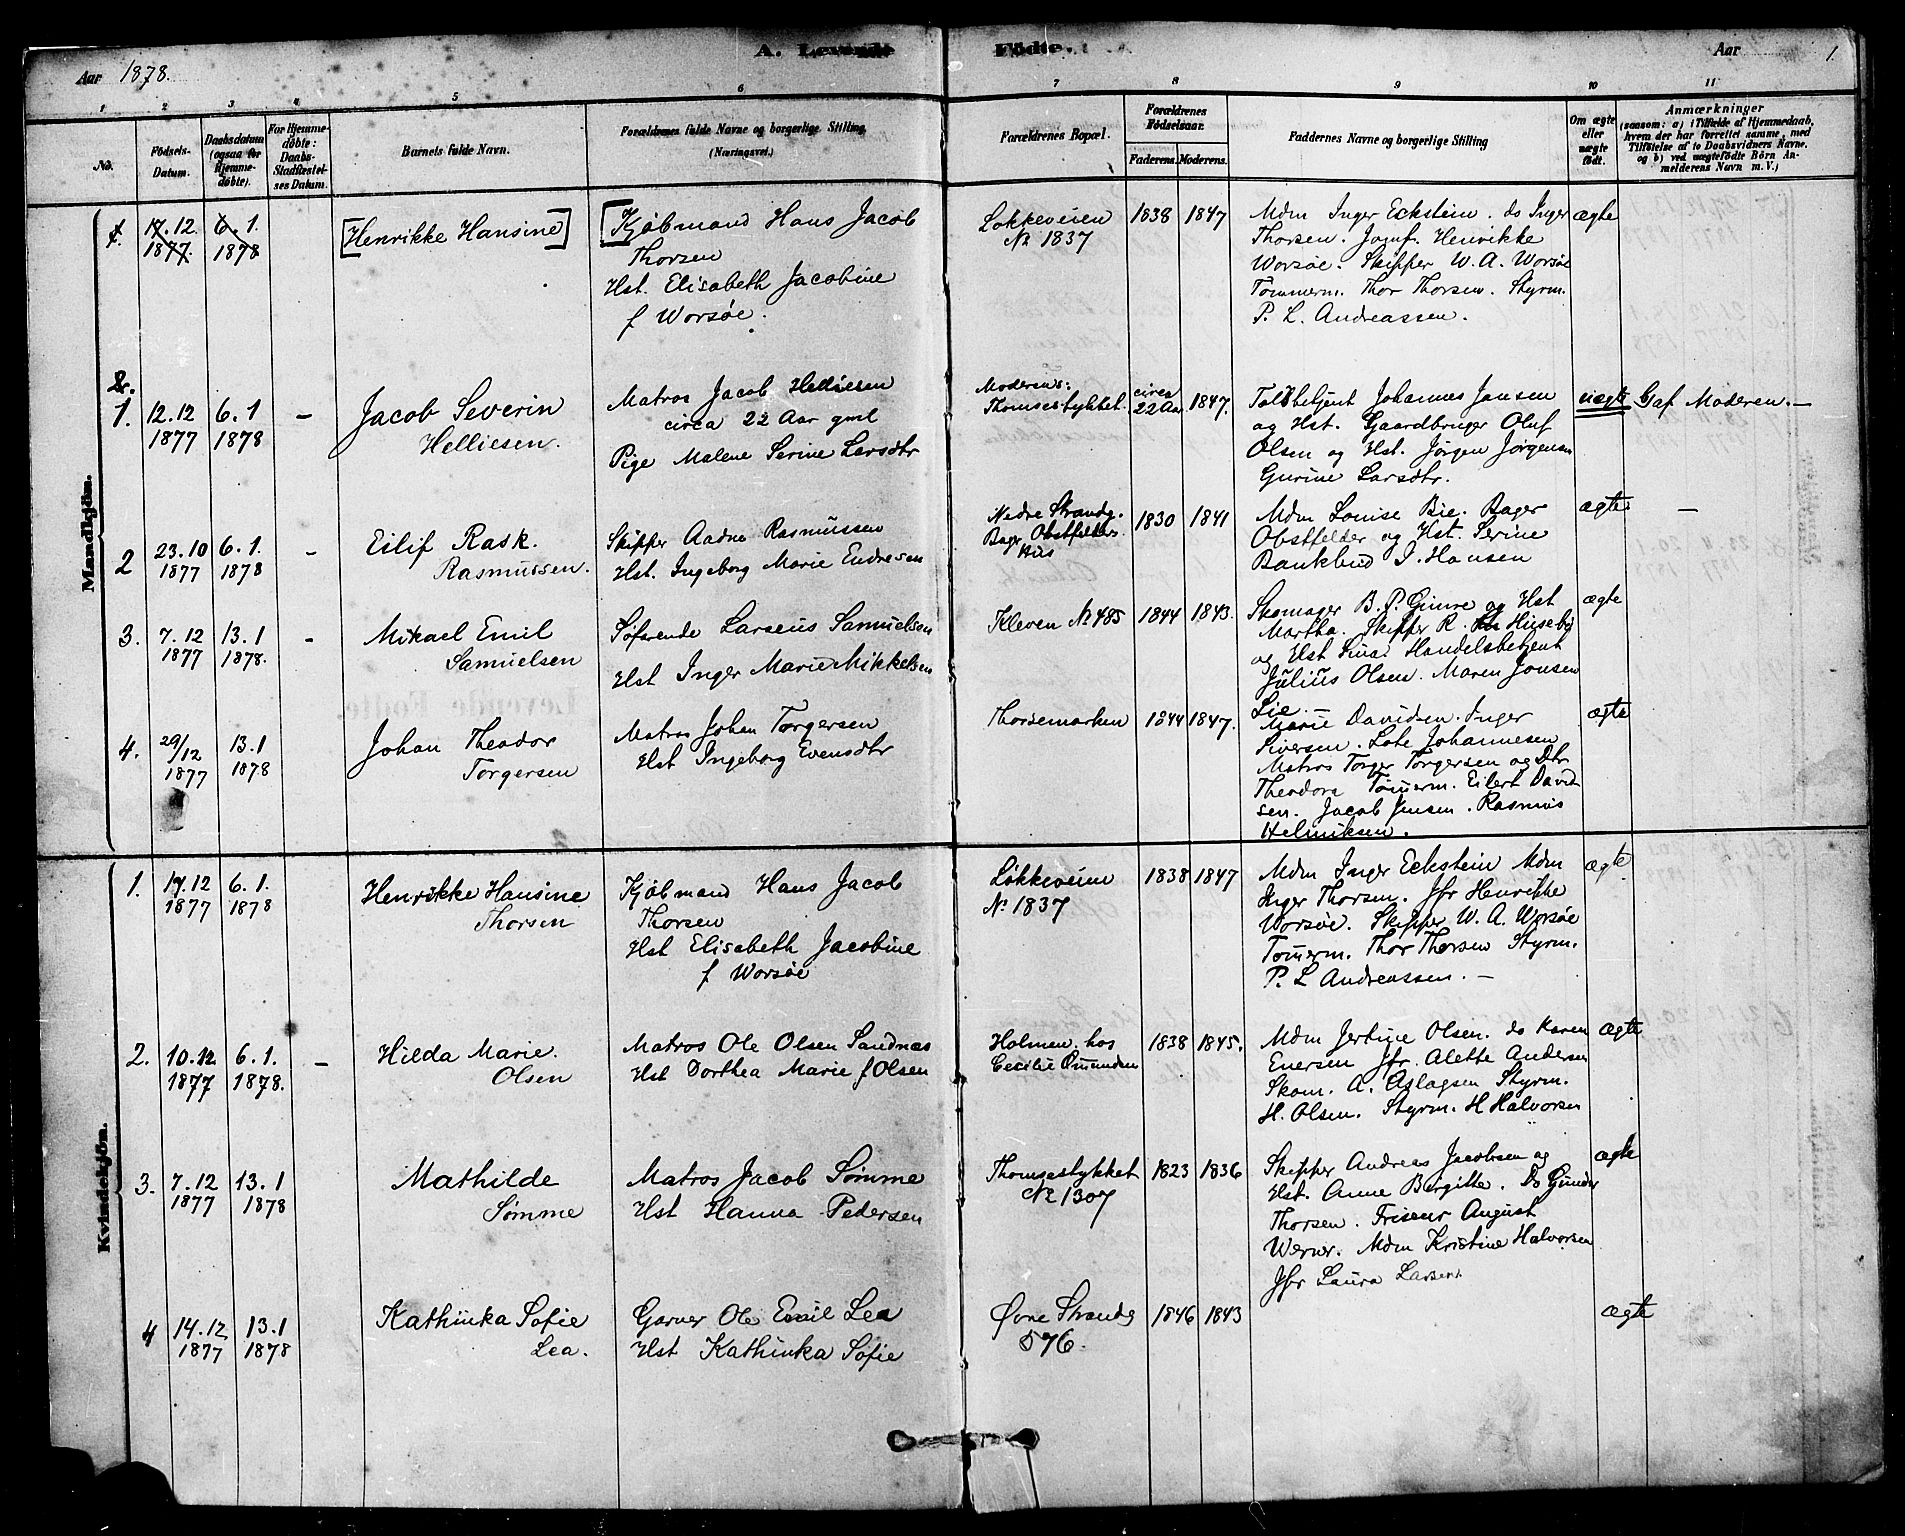 A. Levende Födte.
Aar 1878.
Aar 1
1 2 3 4 5 6 7 8 9 10 11
No.
Födsels-
Datum.
Daabsdatum
(ogsaa for
Hjemme-
döbte).
For Hjemme-
döbte:
Daabs-
Stadfæstel-
ses Datum.
Barnets fulde Navn.
Forældrenes fulde Navne og borgerlige Stilling
(Næringsvei.)
Forældrenes Bopæl.
Forældrenes
Födselsaar.
Faderens. Moderens.
Faddernes Navne og borgerlige Stilling
Om ægte
eller
uægte
født.
Anmærkninger
(saasom: a) i Tilfælde af Hjemmedaab,
hvem der har forrettet samme, med
Tilföielse af to Daabsvidners Navne.
og b) ved uægtefödte Börn An-
melderens Navn m. V.)
Mandkjön.
1. 17.12 1877 6.1. 1878
[Henrikke Hansine]
[Kjøbmand Hans Jacob
Thorsen
Hst. Elisabeth Jacobine
f Worsøe.
Løkkeveien
No 1837
1838 1847
Mdm Inger Eckstein. do Inger
Thorsen. Jomf. Henrikke
Worsøe. Skipper W. A. Worsøe
Tømmerm. Thor Thorsen. Styrm.
P. L. Andreassen.
ægte
1. 12.12 1877 6.1 1878 —
Jacob Severin
Helliesen.
Matros Jacob Helliesen
circa 22 Aar gml
Pige Malene Serine Larsdtr
Moderens:
Thomsestykket.
circa
22 Aar 1847.
Toldbetjent Johannes Jansen
og Hst. Gaardbruger Oluf
Olsen og Hst. Jørgen Jørgensen
Gurine Larsdtr.
uægte
G af Moderen. —
2 23.10 1877 6.1. 1878 —
Eilif Rask.
Rasmussen.
Skipper Aadne Rasmussen
Hst. Ingeborg Marie Endresen
Nedre Strandg.
Bager Obstfelders
Hus
1830 1841
Mdm Louise Bie. Bager
Obstfelder og Hst. Serine
Bankbud J. Hansen
ægte —
3. 7.12 1877 13.1 1878. —
Mikael Emil
Samuelsen
Søfarende Larseus Samuelsen
Hst Inger Marie Mikkelsen
Kleven No 485 1844 1843.
Skomager B. P. Gimre og Hst
Martha. Skipper R. Huseby
og Hst Sina. Handelsbetjent
Julius Olsen. Maren Jonsen
Lie.
ægte
4. 29/12 1877 13.1 1878
Johan Theodor
Torgersen
Matros Johan Torgersen
Hst Ingeborg Evensdtr
Thorsemarken 1844 1847.
Marie Davidsen. Inger
Siversen. Lote Johannesen
Matros Torger Torgersen og Dtr
Theodora Tømerm. Eilert David
sen. Jacob Jensen. Rasmus
Helmiksen.
ægte
Kvindekjön.
1. 17.12 1877 6.1. 1878
Henrikke Hansine
Thorsen
Kjøbmand Hans Jacob
Thorsen
Hst Elisabeth Jacobine
f Worsøe
Løkkeveien
No 1837
1838 1847
Mdm Inger Eckstein Mdm
Inger Thorsen. Jfr Henrikke
Worsøe. Skipper W. A. Worsøe
Tømerm. Thor Thorsen Styrm.
P. L Andreassen. —
ægte
2. 10.12 1877 6.1. 1878. —
Hilda Marie.
Olsen
Matros Ole Olsen Sandnæs
Hst Dorthea Marie f Olsen
Holmen. hos
Cecilie Omundsen
1838 1845.
Mdm Jertine Olsen. do Karen
Enersen Jfr. Alette Andersen
Skom. A. Aslagsen Styrm.
H. Olsen. Styrm. H Halvorsen
ægte
3. 7.12 1877 13.1 1878
Mathilde
Sømme
Matros Jacob Sømme
Hst Hanna Pedersen
Thomsestykket
No 1307
1823 1836
Skipper Andreas Jacobsen og
Hst. Anne Birgitte. Do Gunder
Thorsen. Friseur August
Werner. Mdm Kristine Halvorsen
Jfr Laura Larsen
ægte
4 14.12 1877 13.1 1878
Kathinka Sofie
Lea.
Garver Ole Emil Lea
Hst Kathinka Sofie
Øvre Strandg
576.
1846 1843
ægte